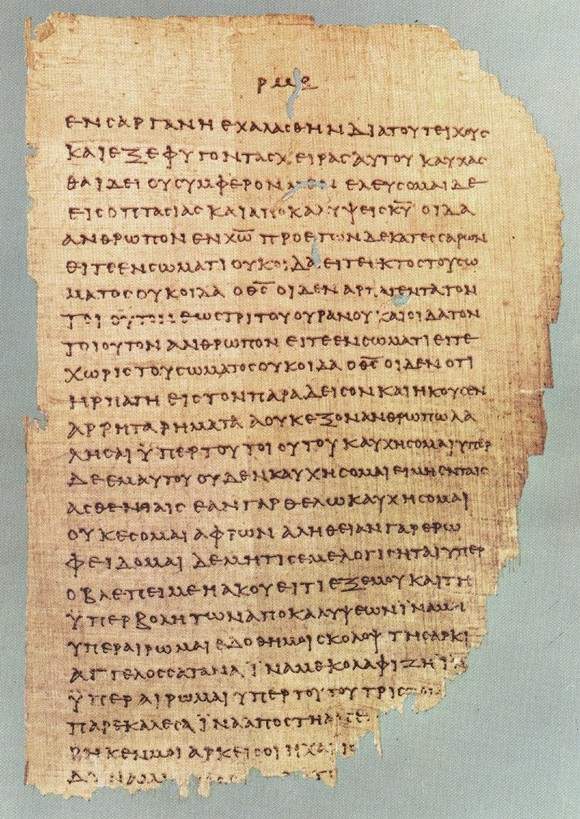 ΡΜΕ
ΕΝϹΑΡΓΑΝΗΕΧΑΛΑϹΘΗΝΔΙΑΤΟΥΤΕΙΧΟΥϹ
ΚΑΙΕΞΕΦΥΓΟΝΤΑϹΧΕΙΡΑϹΑΥΤΟΥΚΑΥΧΑϹ
ΘΑΙΔΕΙΟΥϹΥΜΦΕΡΟΝΜΕΝΕΛΕΥϹΟΜΑΙΔΕ
ΕΙϹΟΠΤΑϹΙΑϹΚΑΙΑΠΟΚΑΛΥΨΕΙϹΚ̅Υ̅ΟΙΔΑ
ΑΝΘΡΩΠΟΝΕΝΧ̅Ω̅ΠΡΟΕΤΩΝΔΕΚΑΤΕϹϹΑΡΩΝ
ΕΙΤΕΕΝϹΩΜΑΤΙΟΥΚΟΙΔΑΕΙΤΕΕΚΤΟϹΤΟΥϹΩ
ΜΑΤΟϹΟΥΚΟΙΔΑΟΘ̅Ϲ̅ΟΙΔΕΝΑΡΠΑΓΕΝΤΑΤΟΝ
ΤΟΙΟΥΤΟΝΕΩϹΤΡΙΤΟΥΟΥΡΑΝΟΥΚΑΙΟΙΔΑΤΟΝ
ΤΟΙΟΥΤΟΝΑΝΘΡΩΠΟΝΕΙΤΕΕΝϹΩΜΑΤΙΕΙΤΕ
ΧΩΡΙϹΤΟΥϹΩΜΑΤΟϹΟΥΚΟΙΔΑΟΘ̅Ϲ̅ΟΙΔΕΝΟΤΙ
ΗΡΠΑΓΗΕΙϹΤΟΝΠΑΡΑΔΕΙϹΟΝΚΑΙΗΚΟΥϹΕΝ
ΑΡΡΗΤΑΡΗΜΑΤΑΑΟΥΚΕΞΟΝΑΝΘΡΩΠΩΛΑ
ΛΗϹΑΙΫΠΕΡΤΟΥΤΟΙΟΥΤΟΥΚΑΥΧΗϹΟΜΑΙΥΠΕΡ
ΔΕΕΜΑΥΤΟΥΟΥΔΕΝΚΑΥΧΗϹΟΜΑΙΕΙΜΗΕΝΤΑΙϹ
ΑϹΘΕΝΕΙΑΙϹΕΑΝΓΑΡΘΕΛΩΚΑΥΧΗϹΟΜΑΙ
ΟΥΚΕϹΟΜΑΙΑΦΡΩΝΑΛΗΘΕΙΑΝΓΑΡΕΡΩ
ΦΕΙΔΟΜΑΙΔΕΜΗΤΙϹΕΜΕΛΟΓΙϹΗΤΑΙΥΠΕΡ
ΟΒΛΕΠΕΙΜΕΗΑΚΟΥΕΙΤΙΕΞΕΜΟΥΚΑΙΤΗ
ΫΠΕΡΒΟΛΗΤΩΝΑΠΟΚΑΛΥΨΕΩΝΪΝΑΜΗ
ΥΠΕΡΑΙΡΩΜΑΙΕΔΟΘΗΜΟΙϹΚΟΛΟΨΤΗϹΑΡΚΙ
ΑΓΓΕΛΟϹϹΑΤΑΝΑΪΝΑΜΕΚΟΛΑΦΙΖΗΪΝΑ
ΫΠΕΡΑΙΡΩΜΑΙΥΠΕΡΤΟΥΤΟΥΤΡΙϹ
ΠΑΡΕΚΑΛΕϹΑΪΝΑΑΠΟϹΤΗΑΠ
ΡΗΚΕΝΜΟΙΑΡΚΕΙϹΟΙΗΧΑΡΙϹ
ΔΥΝΑΜΙϹ